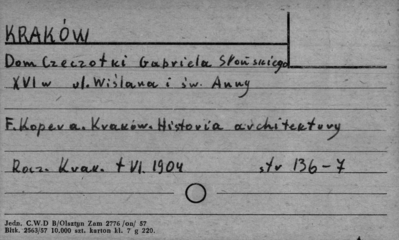 KRAKÓW
Dom Czeczotki Gabriela Słońskiego
XVI w ul. Wiślana i św. Anny
F. Kopera. Kraków. Historia architektury
Rocz. Krak. t VI. 1904 str 136-7
Jedn. C.W.D B/Olsztyn Zam 2776 /on/ 57
Bltk. 2563/57 10.000 szt. karton kl. 7 g 220.